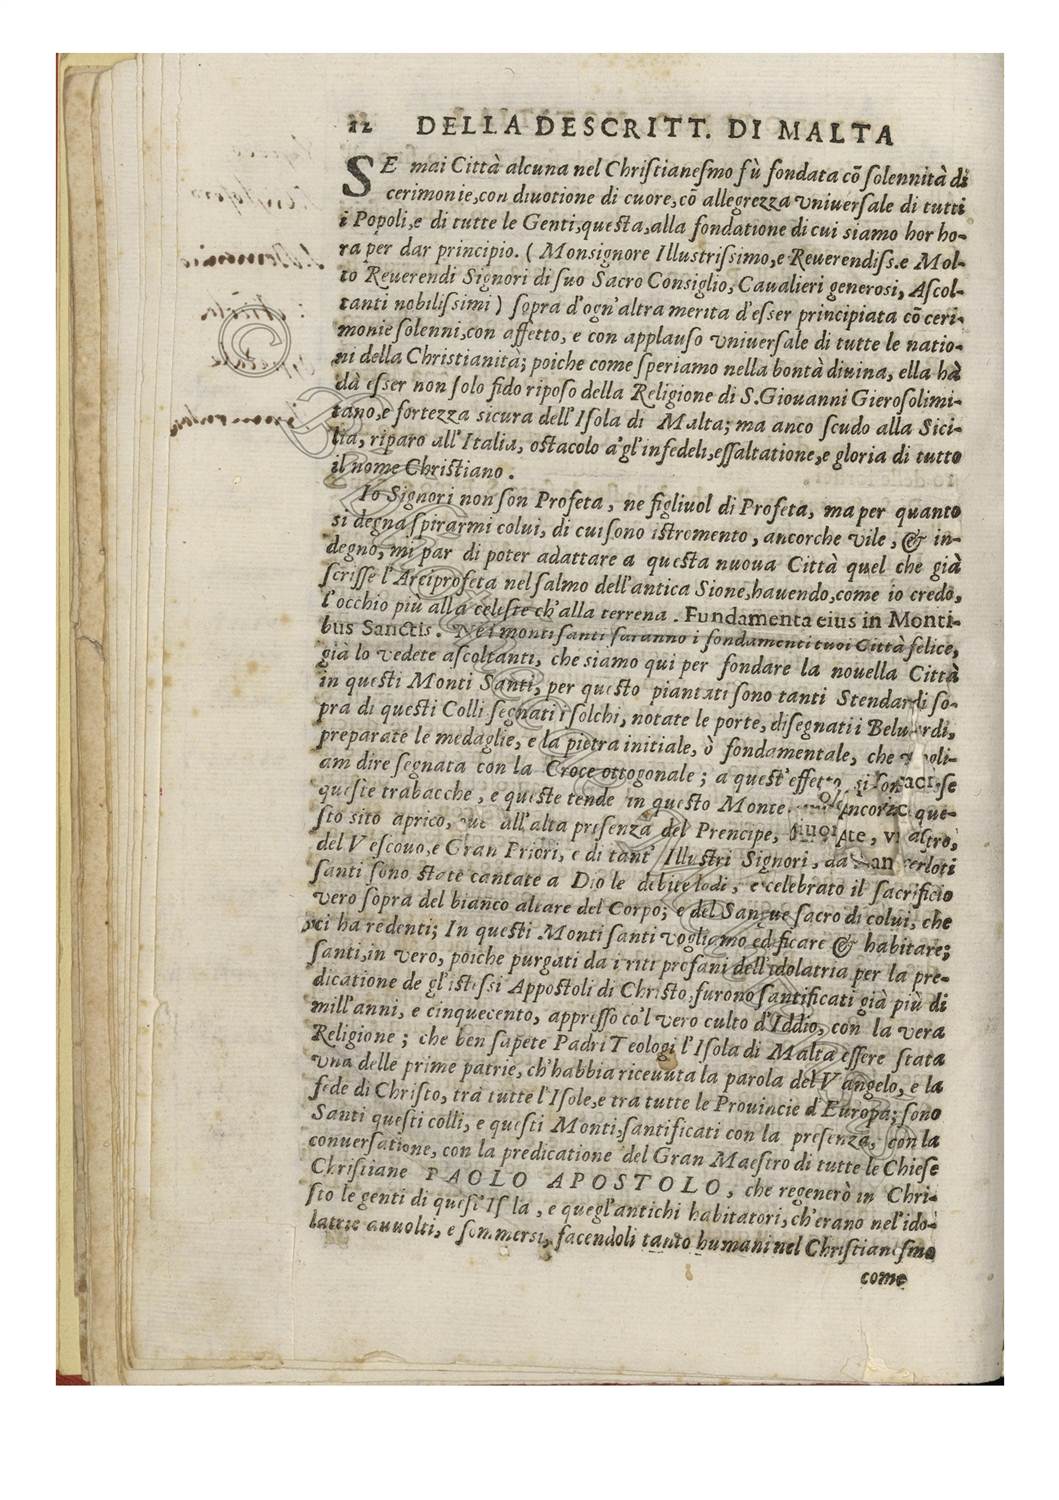 12 DELLA DESCRITT. DI MALTA
SE mai Città alcuna nel Chriſtianeſmo fù fondata cõ ſolennità di
cerimonie,con diuotione di cuore,cõ allegrezza vniuerſale di tutti
i Popoli,e di tutte le Genti,queſta,alla fondatione di cui ſiamo hor ho-
ra per dar principio. ( Monsignore Illuſtriſsimo,e Reuerendiſs.e Mol-
to Reuerendi Signori di ſuo Sacro Conſiglio, Caualieri generoſi, Aſcol-
tanti nobiliſsimi ) ſopra d'ogn'altra merita d'eſser principiata cõ ceri-
monie ſolenni,con affetto, e con applauſo vniuerſale di tutte le natio-
ni della Chriſtianità; poiche come ſperiamo nella bontà diuina, ella hà
dà eſser non ſolo fido ripoſo della Religione di S.Giouanni Gieroſolimi-
tano,e fortezza sicura dell'Iſola di Malta; ma anco ſcudo alla Sici-
lia, riparo all'Italia, oſtacolo a'gl'infedeli,eſſaltatione,e gloria di tutto
il nome Chriſtiano .
Io Signori non ſon Profeta , ne figliuol di Profeta, ma per quanto
si degna ſpirarmi colui, di cui ſono iſtromento , ancorche vile , & in-
degno, mi par di poter adattare a queſta nuoua Città quel che già
ſcriſſe l'Arciprofeta nel ſalmo dell'antica Sione,hauendo,come io credo,
l'occhio più alla celeſte ch'alla terrena . Fundamenta eius in Monti-
bus Sanctis. Ne i monti ſanti ſaranno i fondamenti tuoi Città felice,
già lo vedete aſcoltanti, che ſiamo qui per fondare la nouella Città
in queſti Monti Santi, per queſto piantati ſono tanti Stendardi ſo-
pra di queſti Colli ſegnati i ſolchi, notate le porte, diſegnati i Beluardi,
preparate le medaglie, e la pietra initiale, ò fondamentale, che vogli-
am dire ſegnata con la Croce ottogonale ; a queſt'effetto
queſte trabacche , e queſte tende in queſto Monte que-
ſto sito aprico, oue all'alta preſenza del Prencipe,
del Veſcouo,e Gran Priori, e di tant' Illuſtri Signori, da
ſanti ſono ſtate cantate a Dio le debite lodi , e celebrato il ſacrificio
vero ſopra del bianco altare del Corpo; e del Sangue ſacro di colui, che
ci ha redenti; In queſti Monti ſanti vogliamo edificare & habitare;
ſanti,in vero, poiche purgati da i riti profani dell'idolatria per la pre-
dicatione de gl'iſteſsi Appoſtoli di Chriſto,furono ſantificati già più di
mill'anni, e cinquecento, appreſſo co'l vero culto d'Iddio, con la vera
Religione ; che ben ſapete Padri Teologi l'Iſola di Malta eſſere ſtata
vna delle prime patrie, ch'habbia riceuuta la parola del Vangelo, e la
fede di Chriſto, trà tutte l'Iſole,e tra tutte le Prouincie d'Europa; ſono
Santi queſti colli, e queſti Monti,ſantificati con la preſenza, con la
conuerſatione, con la predicatione del Gran Maeſtro di tutte le Chieſe
Chriſtiane PAOLO APOSTOLO, che regenerò in Chri-
ſto le genti di queſt'Iſla , e quegl'antichi habitatori, ch'erano nel'ido-
latrie auuolti, e ſommersi, facendoli tanto humani nel Chriſtianeſmo
come